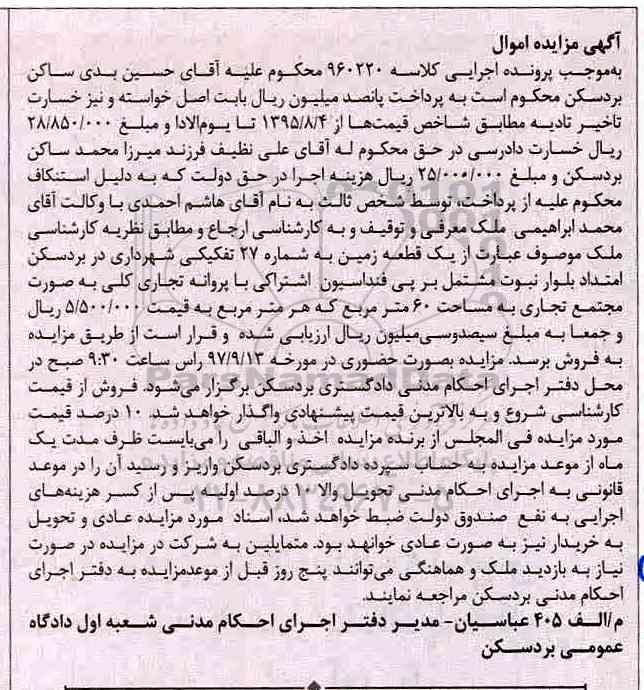 آگهی مزایده اموال
به‌موجب پرونده اجرایی کلاسه ۹۶۰۲۲۰ محکوم علیه آقای حسین بدی ساکن
بردسکن محکوم است به پرداخت پانصد میلیون ریال بابت اصل خواسته و نیز خسارت
تاخیر تادیه مطابق شاخص قیمت‌ها از ۱۳۹۵/۸/۴ تا یوم‌الادا و مبلغ ۲۸/۸۵۰/۰۰۰
ریال خسارت دادرسی در حق محکوم له آقای علی نظیف فرزند میرزا محمد ساکن
بردسکن و مبلغ ۲۵/۰۰۰/۰۰۰ ریال هزینه اجرا در حق دولت که به دلیل استنکاف
محکوم علیه از پرداخت، توسط شخص ثالث به نام آقای هاشم احمدی با وکالت آقای
محمد ابراهیمی ملک معرفی و توقیف و به کارشناسی ارجاع و مطابق نظریه کارشناسی
ملک موصوف عبارت از یک قطعه زمین به شماره ۲۷ تفکیکی شهرداری در بردسکن
امتداد بلوار نبوت مشتمل بر پی فنداسیون اشتراکی با پروانه تجاری کلی به صورت
مجتمع تجاری به مساحت ۶۰ متر مربع که هر متر مربع به قیمت ۵/۵۰۰/۰۰۰ ریال
و جمعا به مبلغ سیصدوسی‌میلیون ریال ارزیابی شده و قرار است از طریق مزایده
به فروش برسد. مزایده بصورت حضوری در مورخه ۹۷/۹/۱۳ راس ساعت ۹:۳۰ صبح در
محل دفتر اجرای احکام مدنی دادگستری بردسکن برگزار می‌شود. فروش از قیمت
کارشناسی شروع و به بالاترین قیمت پیشنهادی واگذار خواهد شد. ۱۰ درصد قیمت
مورد مزایده فی المجلس از برنده مزایده اخذ و الباقی را می‌بایست ظرف مدت یک
ماه از موعد مزایده به حساب سپرده دادگستری بردسکن واریز و رسید آن را در موعد
قانونی به اجرای احکام مدنی تحویل والا ۱۰ درصد اولیه پس از کسر هزینه‌های
اجرایی به نفع صندوق دولت ضبط خواهد شد، اسناد مورد مزایده عادی و تحویل
به خریدار نیز به صورت عادی خوانهد بود. متمایلین به شرکت در مزایده در صورت
نیاز به بازدید ملک و هماهنگی می‌توانند پنج روز قبل از موعدمزایده به دفتر اجرای
احکام مدنی بردسکن مراجعه نمایند.
م/الف ۴۰۵ عباسیان- مدیر دفتر اجرای احکام مدنی شعبه اول دادگاه
عمومی بردسکن